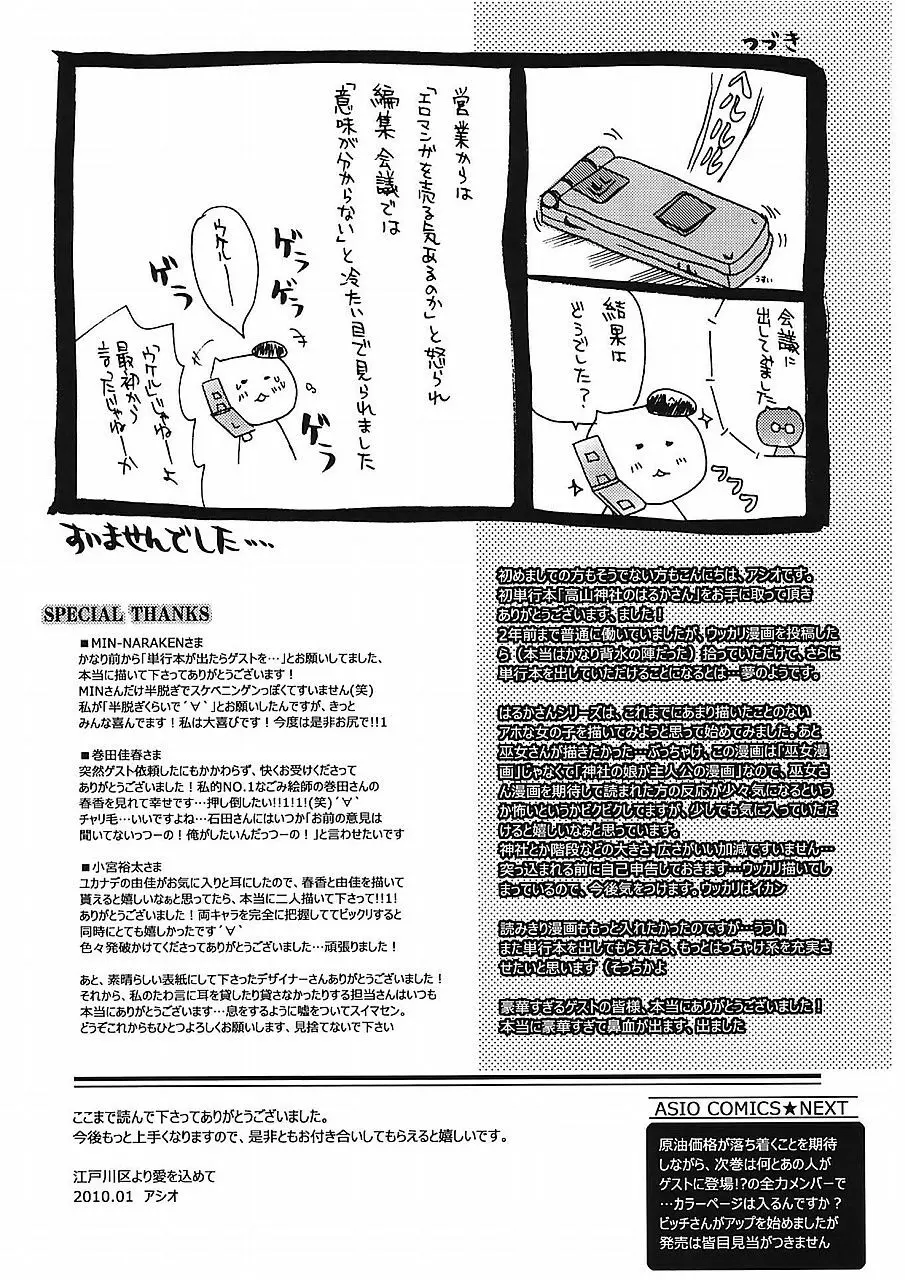 つづき
ヘルルル
うすい
会議に
出してみました
結果は
どうでした?
営業からは
「エロマンガを売る気あるのか」と怒られ
編集会議では
「意味が分からない」と冷たい目で見られました
ウケルー
ゲラ
ゲラ
ゲラ
ゲラ
「ウケル」じゃねーよ
最初から
言ったじゃねーか
すいませんでした….
初めましての方もそうでない方もこんにちは、アシオです。
初単行本「高山神社のはるかさん」をお手に取って頂き
ありがとうございます、ました!
2年前まで普通に働いていましたが、ウッカリ漫画を投稿した
ら(本当はかなり背水の陣だった)拾っていただけて、さらに
単行本を出していただけることになるとは…夢のようです。
はるかさんシリーズは、これまでにあまり描いたことのない
アホな女の子を描いてみようと思って始めてみました。あと
巫女さんが描きたかった…ぶっちゃけ、この漫画は「巫女漫
画」じゃなくて「神社の娘が主人公の漫画」なので、巫女さ
ん漫画を期待して読まれた方の反応が少々気になるという
か怖いというかビクビクしてますが、少しでも気に入っていただ
けると嬉しいなぁと思っています。
神社とか階段などの大きさ・広さがいい加減ですいません…
突っ込まれる前に自己申告しておきます…ウッカリ描いてし
まっているので、今後気をつけます。ウッカリはイカン
読みきり漫画ももっと入れたかったのですが…ううh
また単行本を出してもらえたら、もっとはっちゃけ系を充実さ
せたいと思います(そっちかよ
豪華すぎるゲストの皆様、本当にありがとうございました!
本当に豪華すぎて鼻血が出ます、出ました
SPECIAL THANKS
■MIN-NARAKENさま
かなり前から「単行本が出たらゲストを…」とお願いしてました、
本当に描いて下さってありがとうございます!
MINさんだけ半脱ぎでスケベニンゲンっぽくてすいません(笑)
私が「半脱ぎくらいで´∀`」とお願いしたんですが、きっと
みんな喜んでます!私は大喜びです!今度は是非お尻で!!1
■巻田佳春さま
突然ゲスト依頼したにもかかわらず、快くお受けくださって
ありがとうございました!私的NO.1なごみ絵師の巻田さんの
春香を見れて幸せです…押し倒したい!!1!1!(笑)´∀`
チャリ毛…いいですよね…石田さんにはいつか「お前の意見は
聞いてないっつーの!俺がしたいんだっつーの!」と言わせたいです
■小宮裕太さま
ユカナデの由佳がお気に入りと耳にしたので、春香と由佳を描いて
貰えると嬉しいなぁと思ってたら、本当に二人描いて下さって!!1!
ありがとうございました!両キャラを完全に把握しててビックリすると
同時にとても嬉しかったです´∀`
色々発破かけてくださってありがとうございました…頑張りました!
あと、素晴らしい表紙にして下さったデザイナーさんありがとうございました!
それから、私のたわ言に耳を貸したり貸さなかったりする担当さんはいつも
本当にありがとうございます…息をするように嘘をついてスイマセン。
どうぞこれからもひとつよろしくお願いします、見捨てないで下さい
ここまで読んで下さってありがとうございました。
今後もっと上手くなりますので、是非ともお付き合いしてもらえると嬉しいです。
江戸川区より愛を込めて
2010.01 アシオ
ASIO COMICS★NEXT
原油価格が落ち着くことを期待
しながら、次巻は何とあの人が
ゲストに登場!?の全力メンバーで
…カラーページは入るんですか?
ビッチさんがアップを始めましたが
発売は皆目見当がつきません